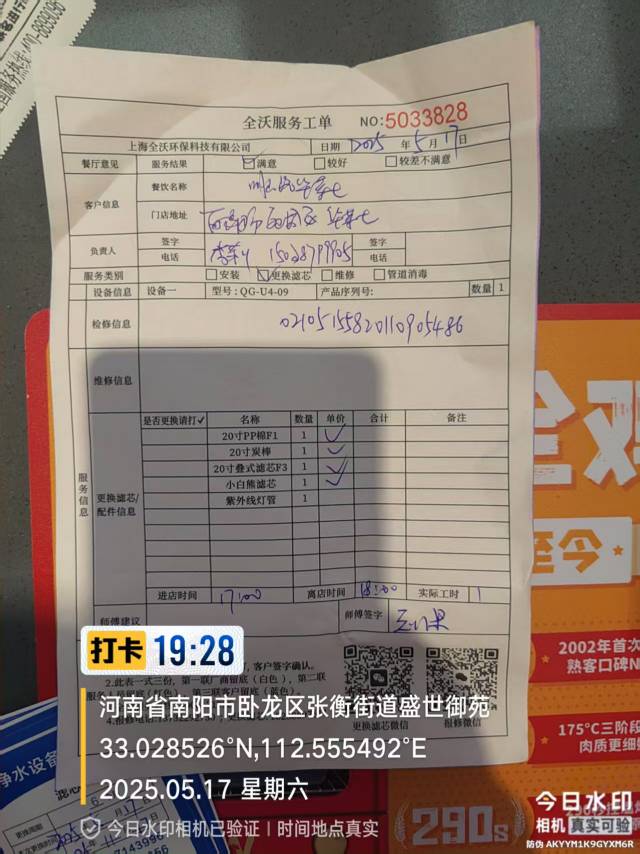 全沃服务工单 NO:5033828
上海全沃环保科技有限公司 日期 2025 年 5 月 17 日
餐厅意见 服务结果 ☑满意 □较好 □较差不满意
客户信息 餐饮名称
门店地址
负责人 签字 签字
电话 15028799905 电话
服务类别 □安装 ☑更换滤芯 □维修 □管道消毒
设备信息 设备一 型号:QG-U4-09 产品序列号: 数量 1
检修信息 02105155820110905486
维修信息
服务信息
更换滤芯/配件信息
是否更换请打✓ 名称 数量 单价 合计 备注
20寸PP棉F1 1 ✓
20寸炭棒 1 ✓
20寸叠式滤芯F3 1 ✓
小白熊滤芯 1 ✓
紫外线灯管 1
进店时间 17:00 离店时间 18:00 实际工时 1
师傅建议 师傅签字
客户签字确认。
2.此表一式三份,第一联厂商留底(白色),第二联
服务人员留底(红色),第三联客户留底(蓝色)。
更换滤芯微信 报修微信
打卡 19:28
河南省南阳市卧龙区张衡街道盛世御苑
33.028526°N,112.555492°E
2025.05.17 星期六
今日水印相机已验证 | 时间地点真实
今日水印
相机 真实可验
防伪 AKYYM1K9GYXM6R
至今
2002年首次
熟客口碑N
175°C三阶段
肉质更细
290s
净水设备